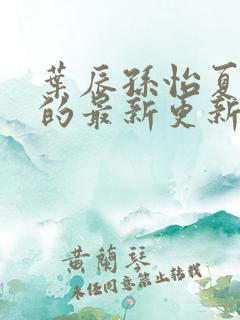 葉辰孫怡夏
的最新更新
黄蘭琴
未经同意禁止转载